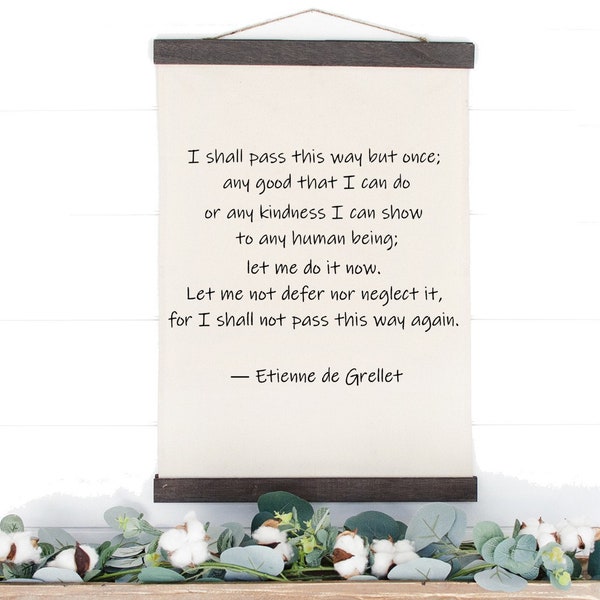 I shall pass this way but once;
any good that I can do
or any kindness I can show
to any human being;
let me do it now.
Let me not defer nor neglect it,
for I shall not pass this way again.
— Etienne de Grellet